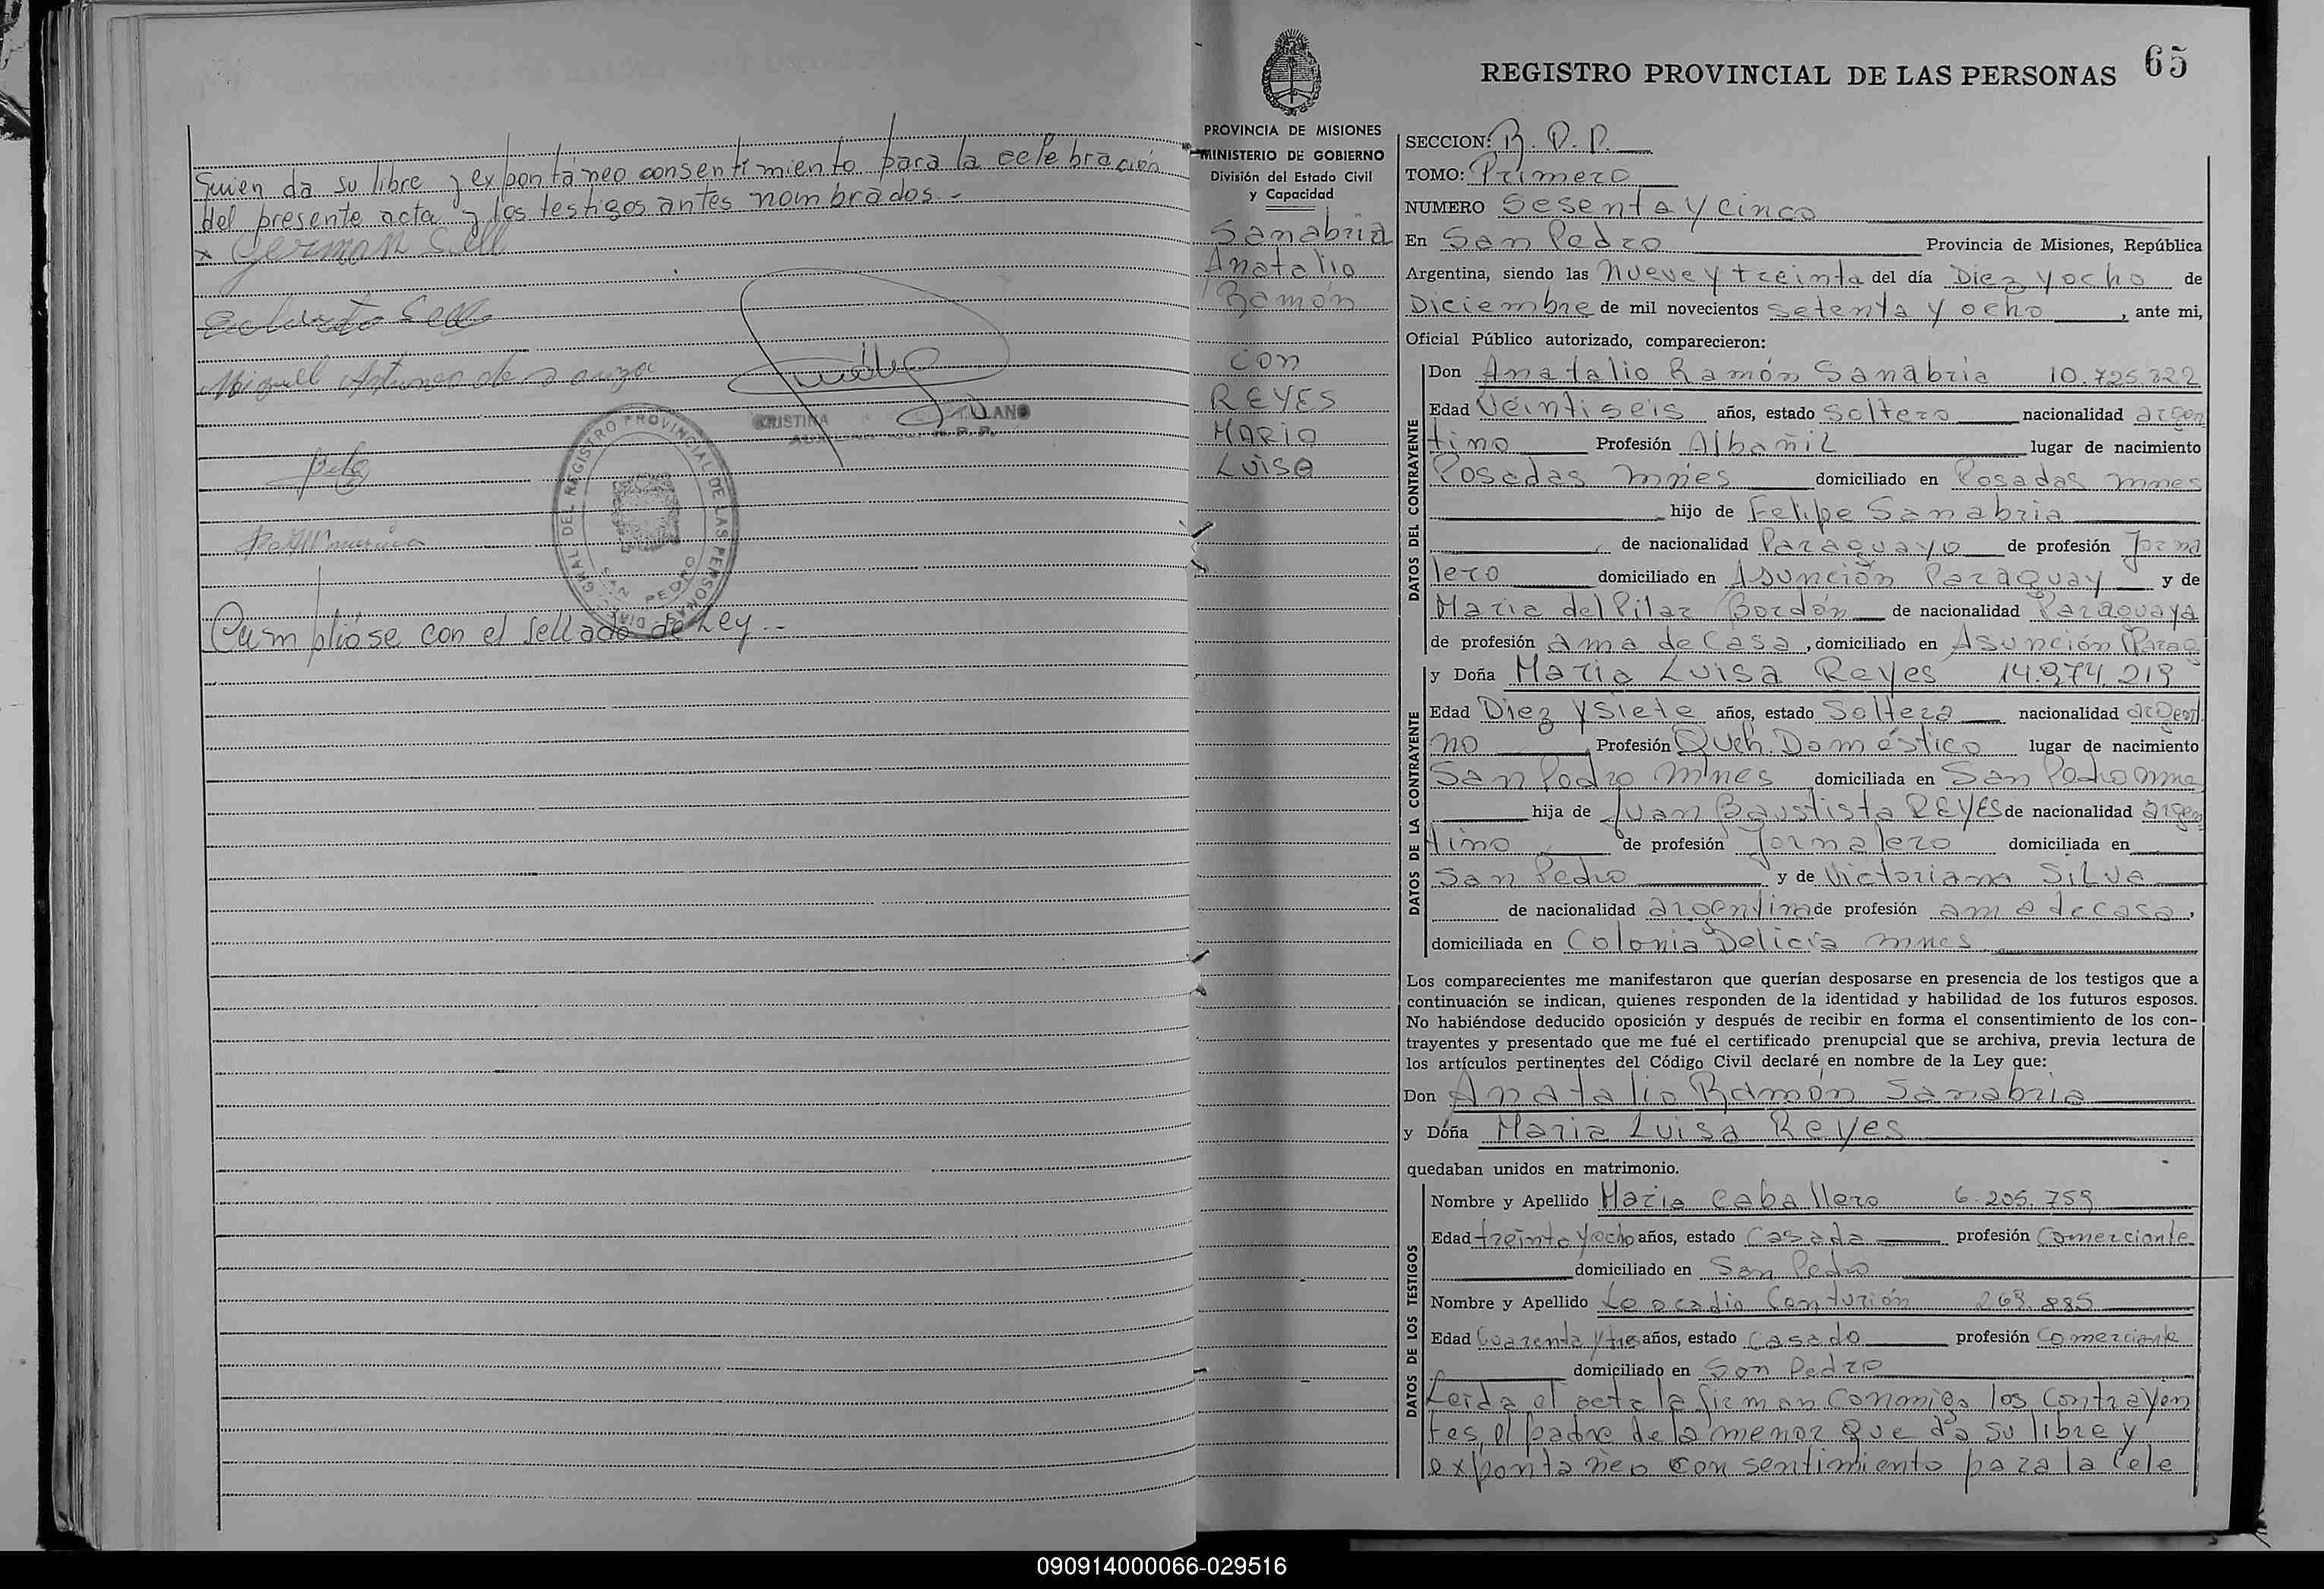 Quien da su libre y expontáneo consentimiento para la celebración
del presente acta y los testigos antes nombrados.-
x German Sell
Sell
Miguel Antunes de Souza
CRISTINA
DIR. GRAL. DEL REGISTRO PROVINCIAL DE LAS PERSONAS
SAN PEDRO
Cumplióse con el Sellado de Ley.-
65
REGISTRO PROVINCIAL DE LAS PERSONAS
PROVINCIA DE MISIONES
MINISTERIO DE GOBIERNO
División del Estado Civil
y Capacidad
Sanabria
Anatalio
Ramón
con
REYES
MARIA
LUISA
SECCION: R. P. P.
TOMO: Primero
NUMERO Sesenta y cinco
En San Pedro Provincia de Misiones, República
Argentina, siendo las nueve y treinta del día Diez y ocho de
Diciembre de mil novecientos setenta y ocho, ante mi,
Oficial Público autorizado, comparecieron:
DATOS DEL CONTRAYENTE
Don Anatalio Ramón Sanabria 10.725.322
Edad Veintiseis años, estado Soltero nacionalidad argen
tino Profesión Albañil lugar de nacimiento
Posadas Mnes domiciliado en Posadas mnes
hijo de Felipe Sanabria
de nacionalidad Paraguayo de profesión Jorna
lero domiciliado en Asunción Paraguay y de
Maria del Pilar Bordón de nacionalidad Paraguaya
de profesión Ama de Casa, domiciliado en Asunción (Parag
DATOS DE LA CONTRAYENTE
y Doña Maria Luisa Reyes 14.974.219
Edad Diez y Siete años, estado Soltera nacionalidad argenti
na Profesión Queh. Doméstico lugar de nacimiento
San Pedro Mnes domiciliada en San Pedro Mne
hija de Juan Baustista REYES de nacionalidad argen
tino de profesión Jornalero domiciliada en
San Pedro y de Victoriana Silva
de nacionalidad argentina de profesión ama de casa,
domiciliada en Colonia Delicia mnes
Los comparecientes me manifestaron que querían desposarse en presencia de los testigos que a
continuación se indican, quienes responden de la identidad y habilidad de los futuros esposos.
No habiéndose deducido oposición y después de recibir en forma el consentimiento de los con-
trayentes y presentado que me fué el certificado prenupcial que se archiva, previa lectura de
los artículos pertinentes del Código Civil declaré en nombre de la Ley que:
Don Anatalio Ramón Sanabria
y Doña Maria Luisa Reyes
quedaban unidos en matrimonio.
DATOS DE LOS TESTIGOS
Nombre y Apellido Maria Caballero 6.205.759
Edad treinta y ocho años, estado Casada profesión Comerciante
domiciliado en San Pedro
Nombre y Apellido Leocadio Centurión 263.885
Edad Cuarenta y tres años, estado casado profesión Comerciante
domiciliado en San Pedro
Leída el acta la firman conmigo los Contrayen
tes, el padre de la menor que da su libre y
expontáneo consentimiento para la Cele
090914000066-029516